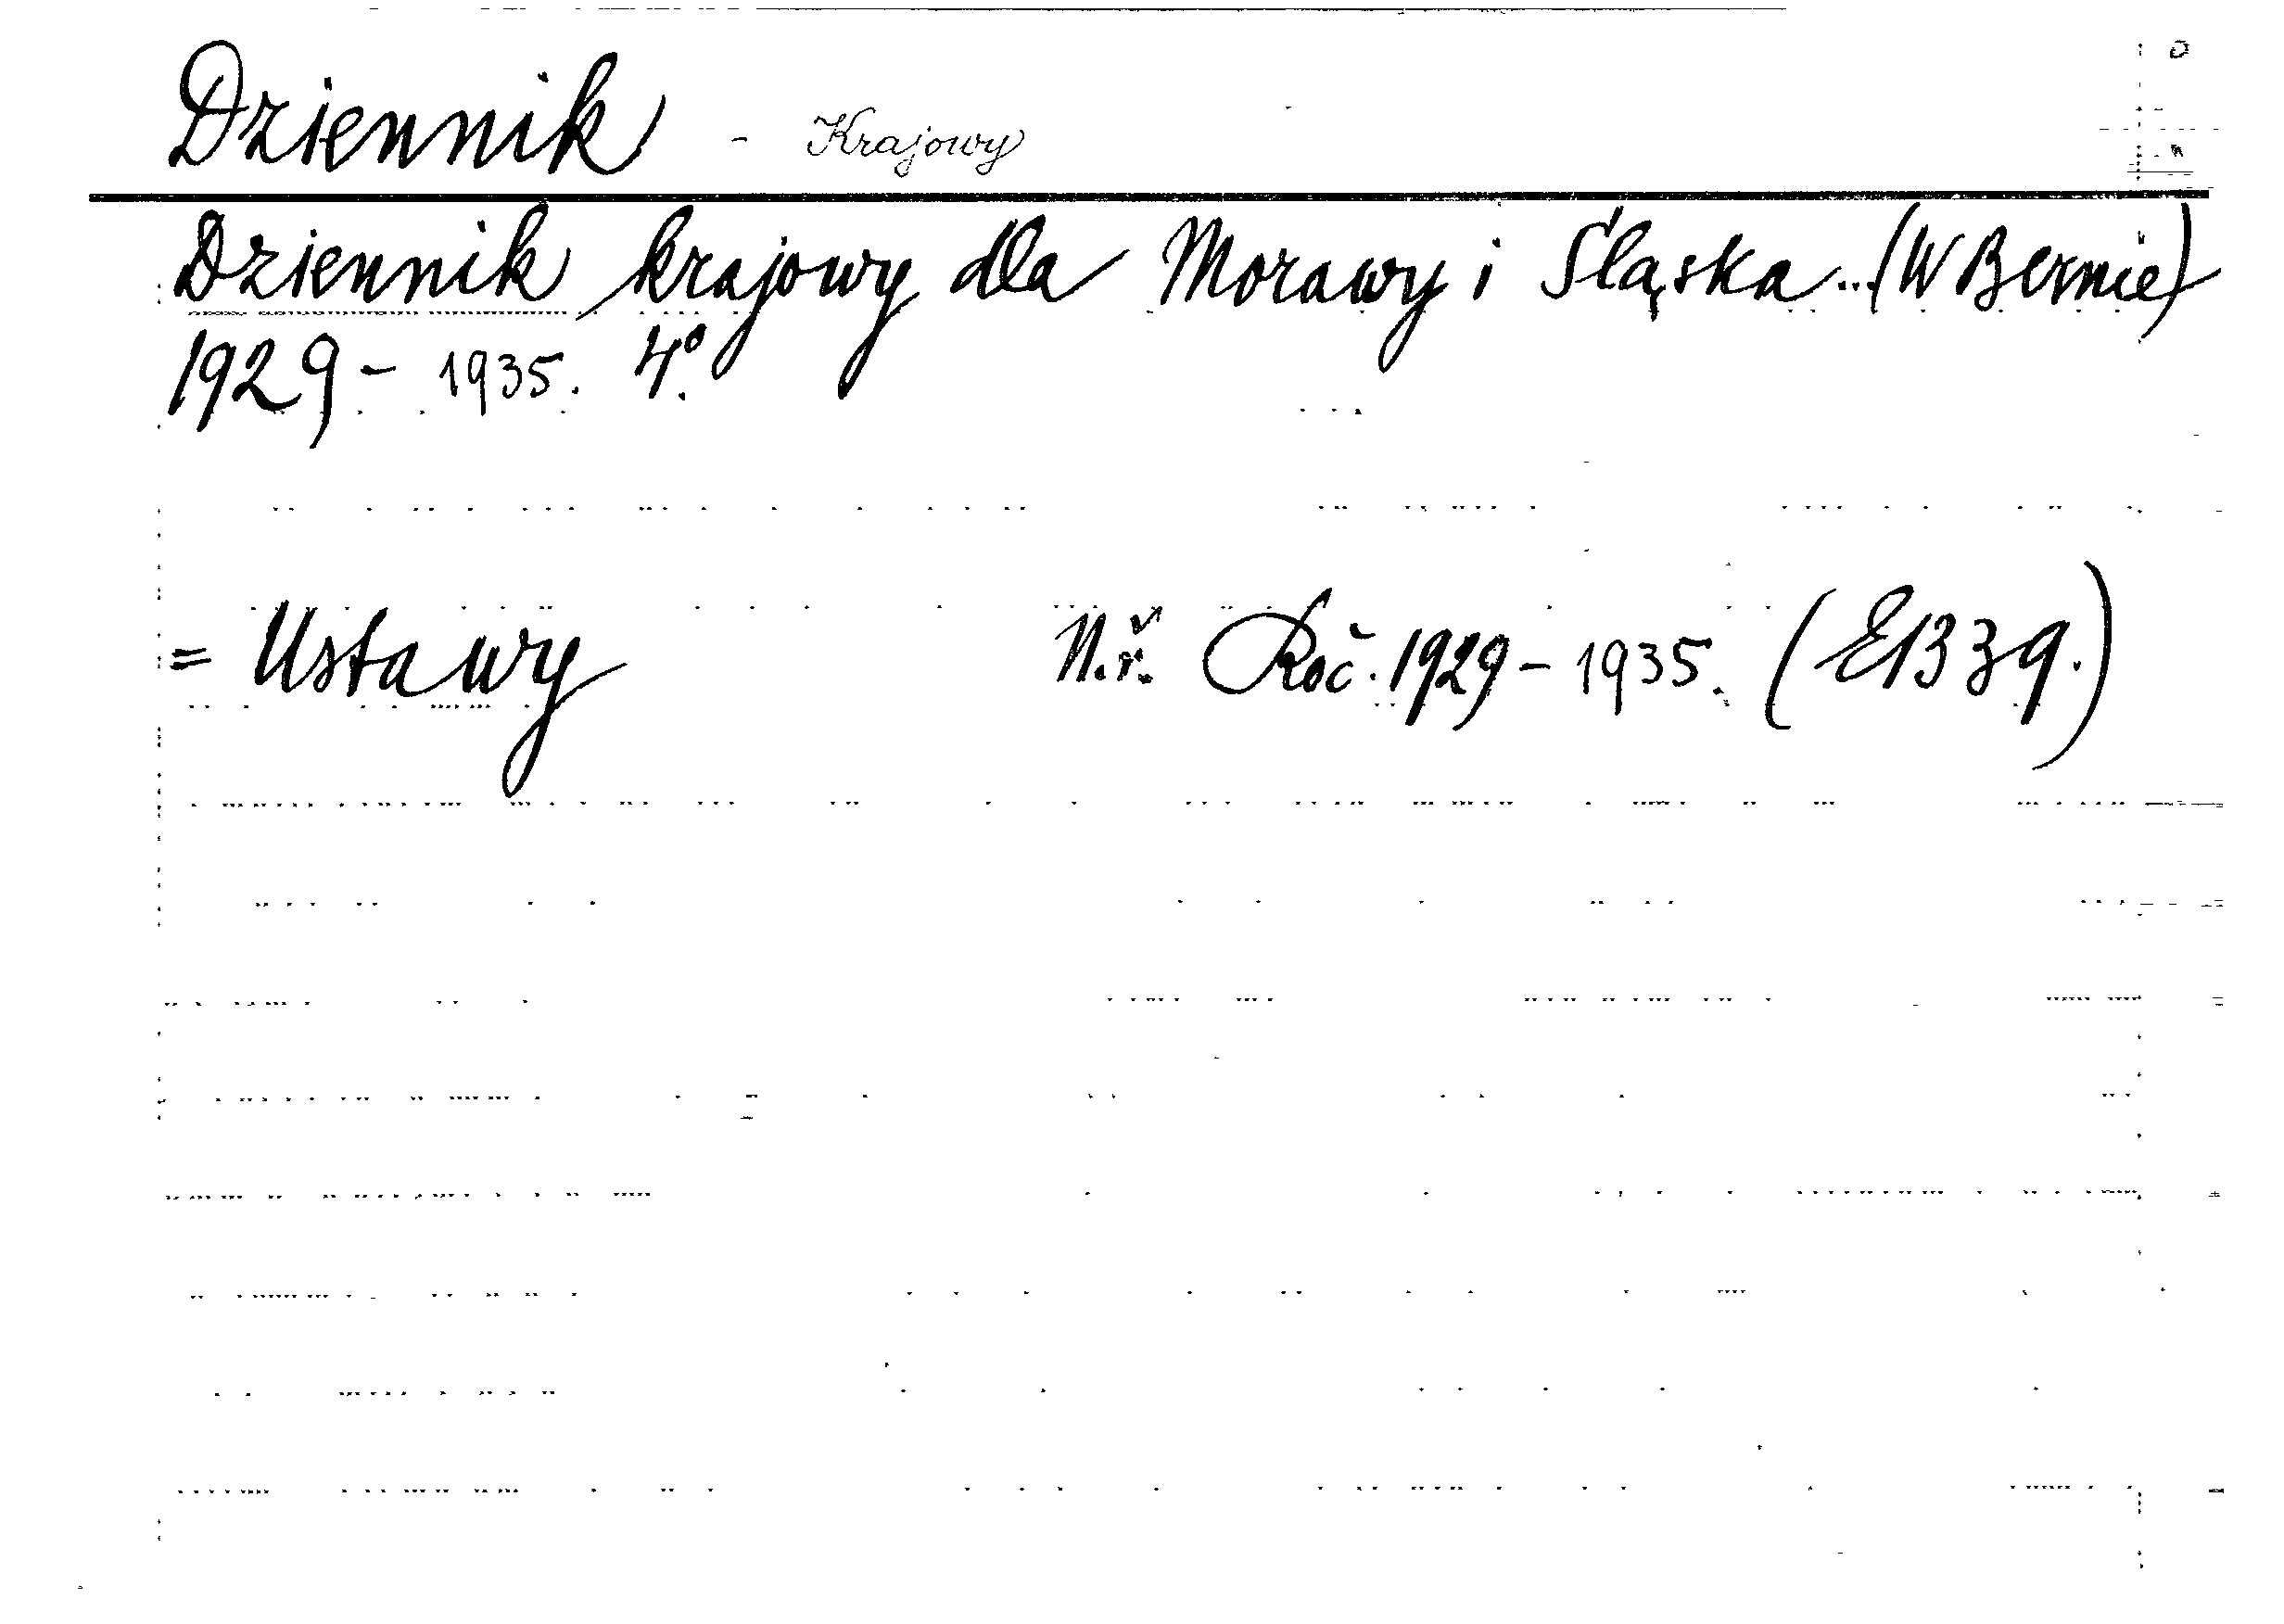 Dziennik - Krajowy
Dziennik krajowy dla Morawy i Śląska... (W Bernie)
1929 - 1935. 4°.
= Ustawy N.ř. Roč. 1929 - 1935. (E1339.)